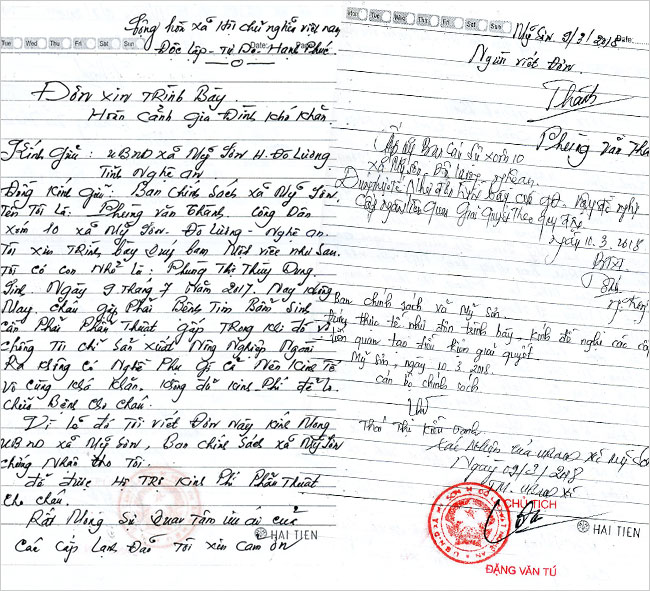 Cộng hòa xã hội chủ nghĩa việt nam
Tue Wed Thu Fri Sat Sun Date:
Độc lập - Tự Do - Hạnh Phúc
Đơn xin Trình Bày
Hoàn Cảnh Gia Đình Khó Khăn
Kính Gửi: UBND xã Mỹ Sơn H. Đô Lương
Tỉnh Nghệ An
Đồng Kính Gửi: Ban Chính Sách xã Mỹ Sơn.
Tên Tôi Là: Phùng Văn Thành. Công Dân
xóm 10 xã Mỹ Sơn. Đô Lương - Nghệ An.
Tôi xin Trình bày Quý ban một việc như sau.
Tôi có con Nhỏ là: Phùng Thị Thùy Dung.
Sinh Ngày 9 Tháng 7 Năm 2017. Nay không
May cháu gặp Phải Bệnh Tim Bẩm Sinh
cần Phải Phẫu Thuật Gấp Trong khi đó vợ
chồng Tôi chỉ Sản xuất Nông Nghiệp Ngoài
Ra không có Nghề Phụ Gì cả Nên Kinh Tế
Vô cùng khó Khăn. không đủ Kinh Phí để lo
chữa Bệnh cho cháu.
Vì lẽ đó Tôi viết Đơn Này kính Mong
UBND xã Mỹ Sơn, Ban chính Sách xã Mỹ Sơn
chứng Nhận cho Tôi.
để được Hỗ Trợ Kinh Phí Phẫu Thuật
cho cháu.
Rất Mong Sự Quan Tâm ưu ái của
Các Cấp Lãnh Đạo Tôi xin Cảm ơn
HAI TIEN
Mon Tue Wed Thu Fri Sat Sun Date:
Mỹ Sơn 9/3/2018
Người viết Đơn
Thành
Phùng Văn Thà
Ban Cán Sự xóm 10
xã Mỹ Sơn, Đô lương, Nghệ an.
Đúng thực tế Như đơn trình bày của gđ. Vậy đề nghị
Cấp ngành liên quan Giải Quyết Theo quy định
ngày 10.3.2018
Ban chính sách xã Mỹ Sơn
Đúng thực tế như đơn trình bày. Kính đề nghị các cấp
liên quan tạo điều kiện giải quyết
Mỹ Sơn, ngày 10.3.2018
Cán bộ chính sách
Thái Thị Kiều Oanh
Xác Nhận của UBND xã Mỹ Sơ
Ngày 09/3/2018
TM. UBND xã
CHỦ TỊCH
HAI TIEN
ĐẶNG VĂN TÚ